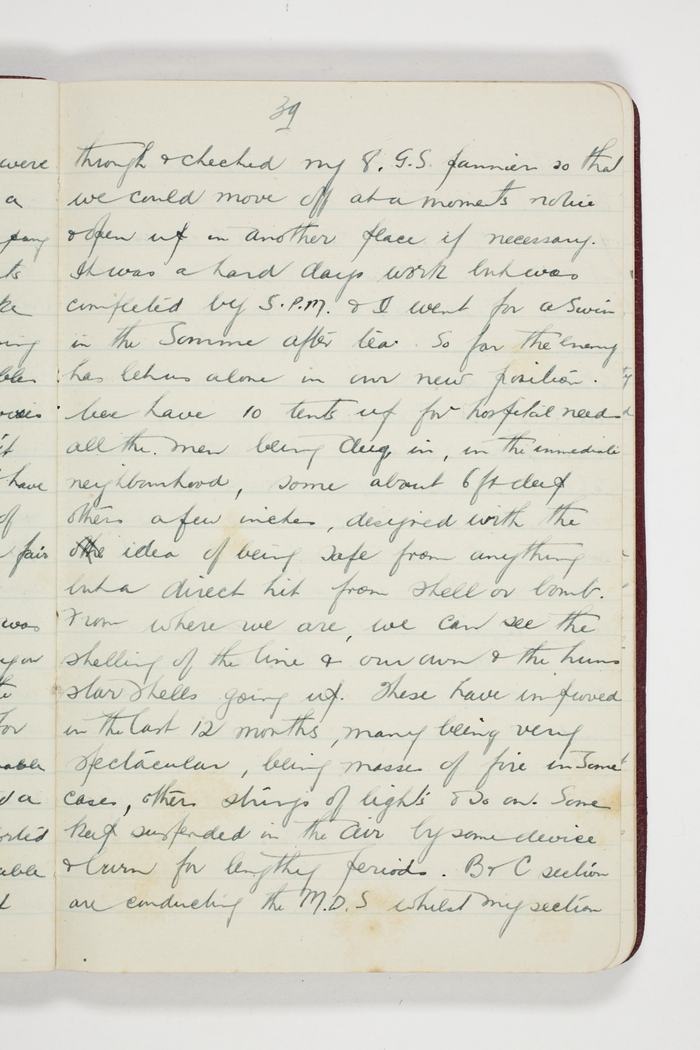 39
were through & checked my 8. G.S. panniers so that
a we could move off at a moments notice
& open up in another place if necessary.
It was a hard days work but was
completed by 5. P.M. & I went for a swim
in the Somme after tea. So far the enemy
has let us alone in our new position.
We have 10 tents up for hospital needs
all the men being dug in, in the immediate
have neighbourhood, some about 6 ft deep
of others a few inches, designed with the
fair idea of being safe from anything
but a direct hit from shell or bomb.
was From where we are, we can see the
shelling of the line & our own & the huns
star shells going up. These have improved
for in the last 12 months, many being very
spectacular, being masses of fire in some
cases, others strings of lights & so on. Some
kept suspended in the air by some device
& burn for lengthy periods. B & C section
are conducting the M.D.S whilst my section